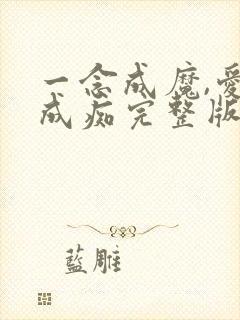 一念成魔,爱
成痴完整版
蓝雕